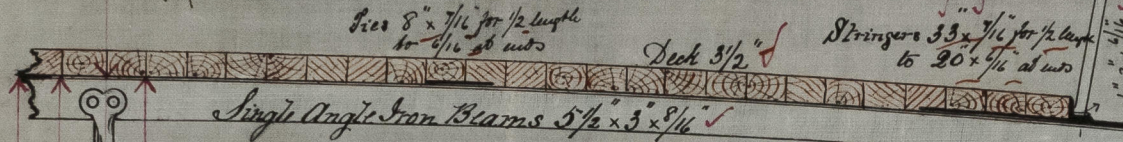 Ties 8" x 7/16" for 1/2 length
to 6/16" at ends
Deck 3 1/2"
Stringers 33" x 7/16" for 1/2 length
to 20" x 6/16" at ends
Single Angle Iron Beams 5 1/2" x 3" x 8/16"